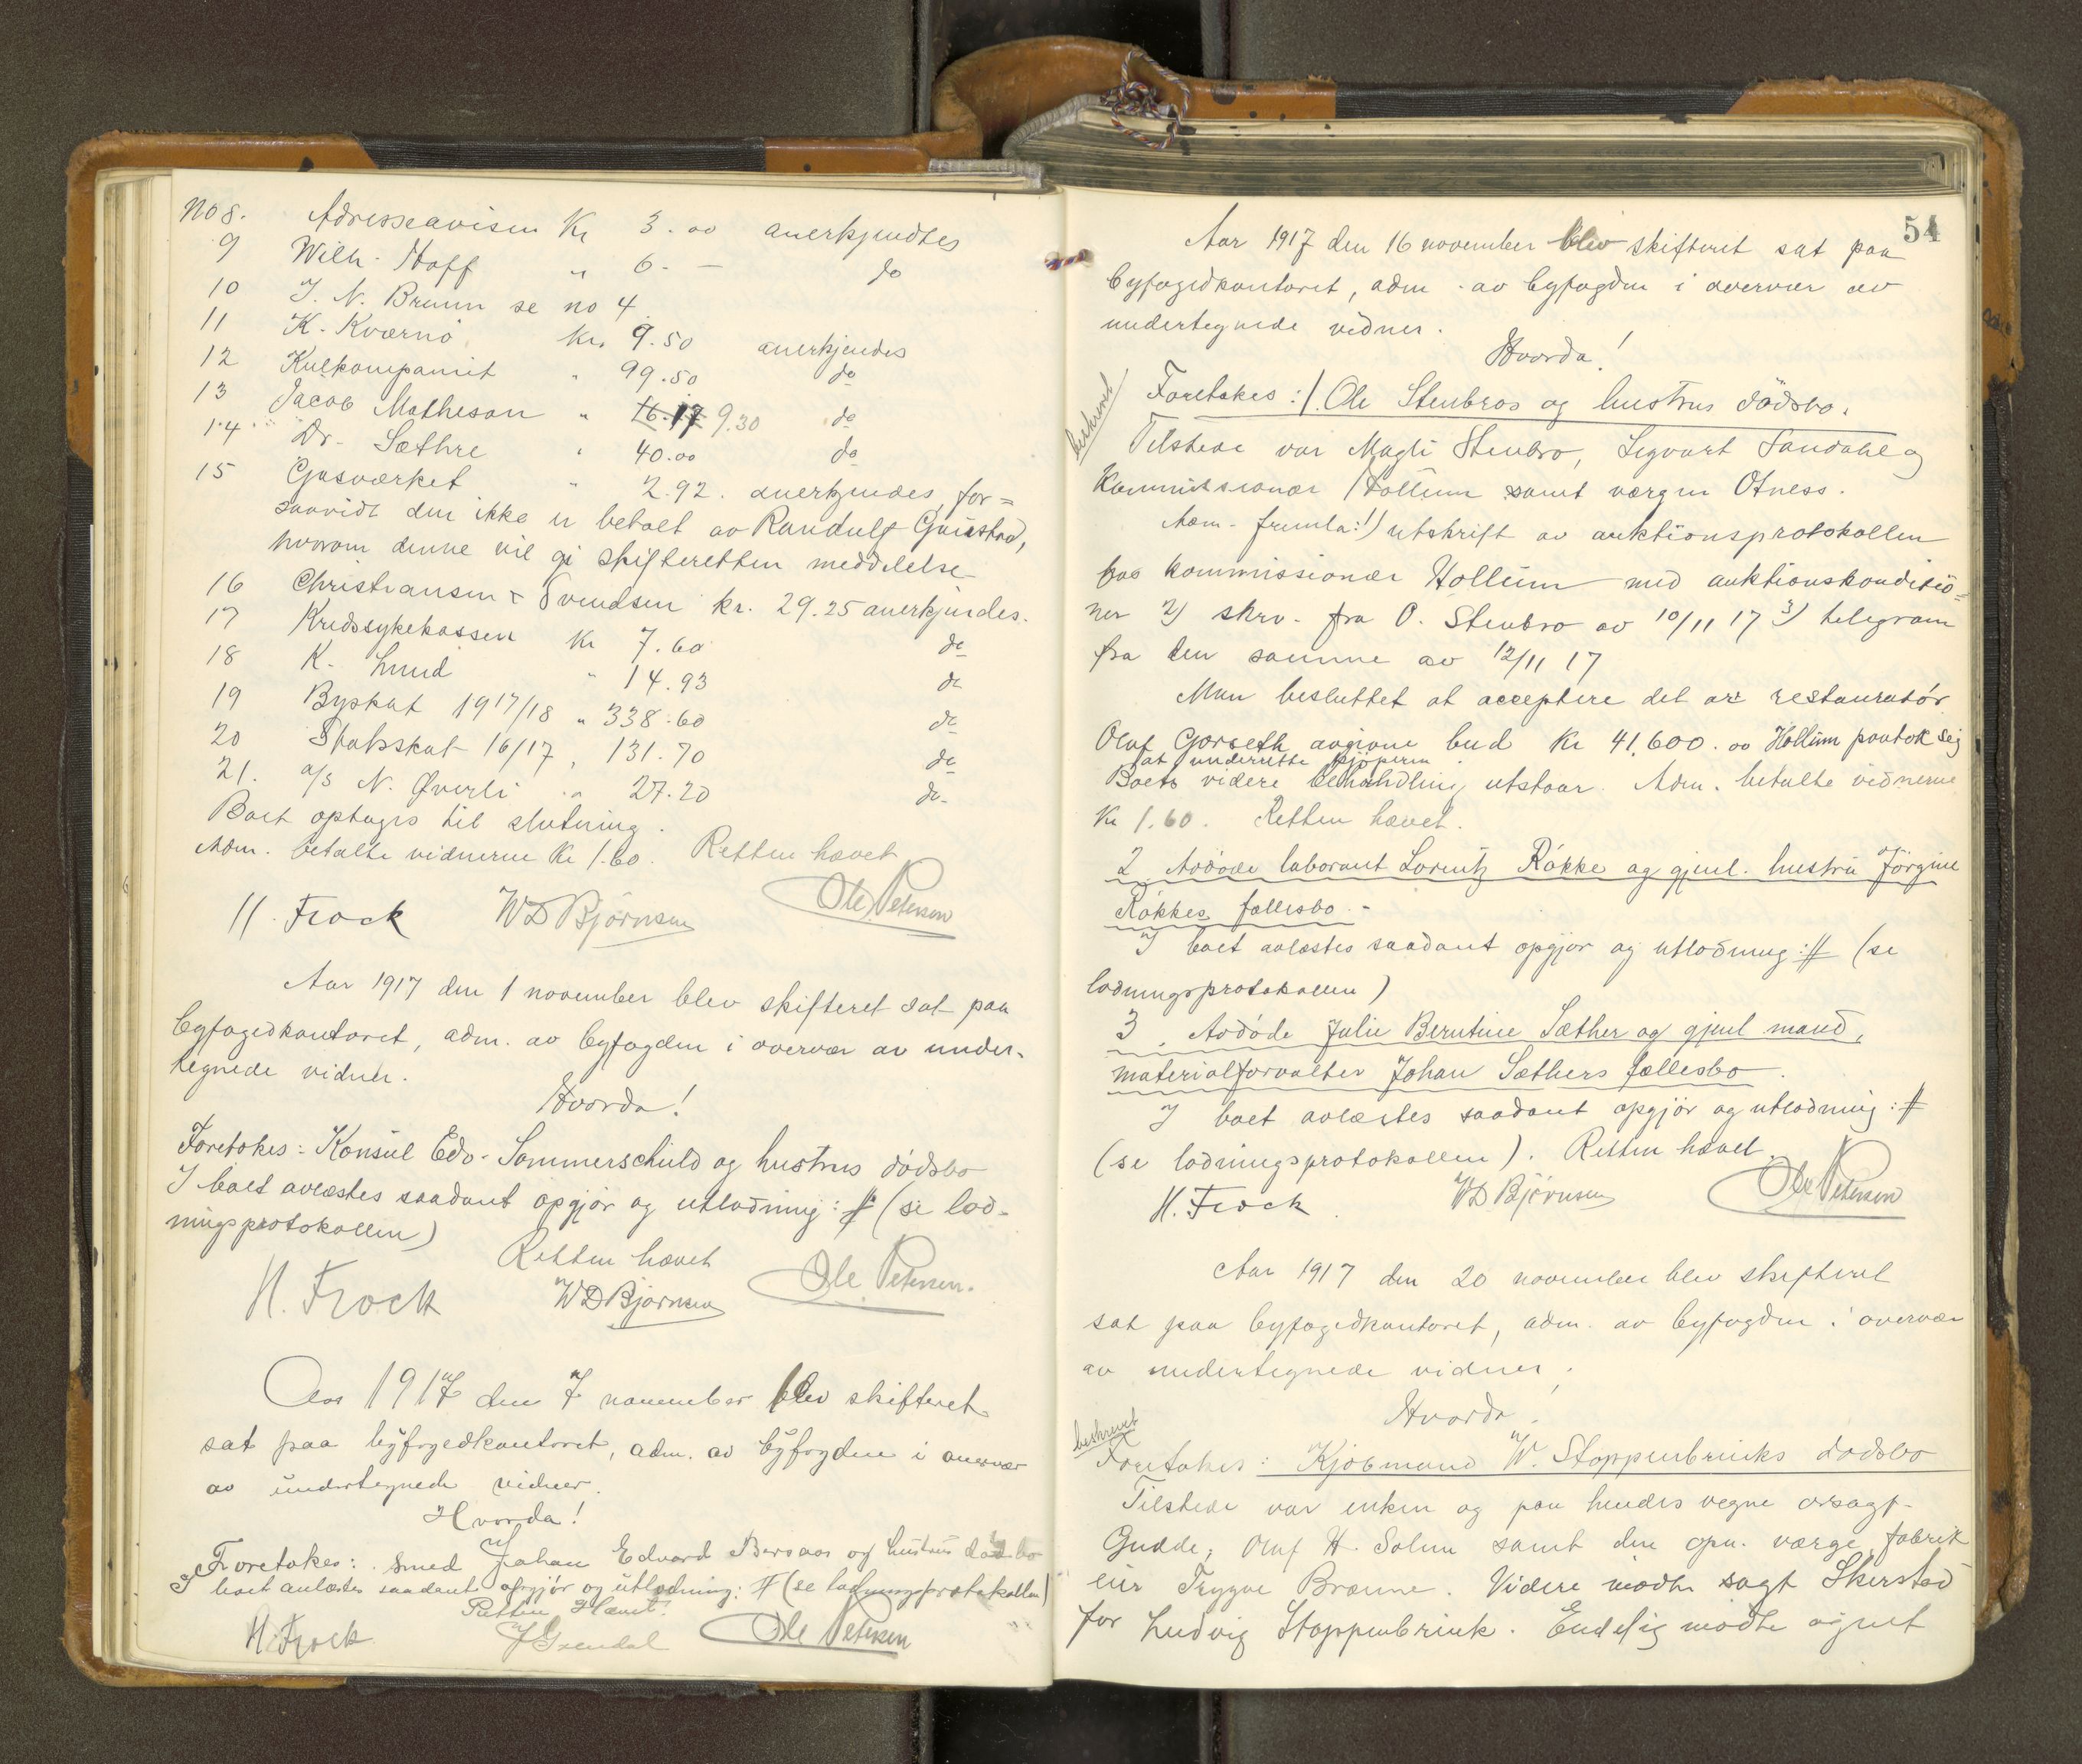 No 8. Adresseavisen Kr 3.00 anerkjendtes
9 Wilh. Hoff " 6.— do
10 J. N. Bruun se no 4
11 K. Kværnø kr. 9.50 anerkjendes
12 Kulkompaniet " 99.50 do
13 Jacob Matheson " 16.17 9.30 do
14 Dr. Sæthre " 40.00 do
15 Gasværket " 2.92. anerkjendes, for=
saavidt den ikke er betalt av Randulf
hvorom denne vil gi skifteretten meddelelse
16 Christiansen & Svendsen kr. 29.25 anerkjendes.
17 Kredssykekassen Kr 7.60 do
18 K. Lund " 14.93 do
19 Byskat 1917/18 " 338.60 do
20 Statsskat 16/17 " 131.70 do
21. a/s N. Øverli " 27.20 do.
Boet optages til slutning.
Adm. betalte vidnerne Kr 1.60. Retten hævet
H. Frock WD Bjørnsen Ole Petersen
Aar 1917 den 1 november blev skifteret sat paa
byfogedkontoret, adm. av byfogden i overvær av under-
tegnede vidner.
Hvorda!
Foretokes: Konsul Edv. Sommerschild og hustrus dødsbo
I boet avlæstes saadant opgjør og utlodning: # (se lod-
ningsprotokollen)
Retten hævet
H. Frock WD Bjørnsen Ole Petersen.
Aar 1917 den 7 november blev skifteret
sat paa byfogedkontoret, adm. av byfogden i overvær
av undertegnede vidner.
Hvorda!
Foretokes: Smed Johan Edvard Bersaas og hustrus dødsbo
I boet avlæstes saadant opgjør og utlodning: # (se lodningsprotokollen)
Retten Hævet.
H. Frock Ole Petersen
54
Aar 1917 den 16 november blev skifteret sat paa
byfogedkontoret, adm. av byfogden i overvær av
undertegnede vidner.
Hvorda!
beskrevet
Foretokes: 1. Ole Stenbros og hustrus dødsbo.
Tilstede var Magli Stenbro, Sigvart Sandahl og
Kommissionær Hollum samt værgen Otness.
Adm. fremla: 1) utskrift av auktionsprotokollen
hos kommissionær Hollum med auktionskonditio=
ner 2) skrv. fra O. Stenbro av 10/11 17 3) telegram
fra den samme av 12/11 17
Man besluttet at acceptere det av restauratør
Oluf Gorseth avgivne bud Kr 41.600.00 Hollum paatok sig
at underrette kjøperen.
Boets videre behandling utstaar. Adm. betalte vidnerne
Kr 1.60. Retten hævet.
2. Avdøde laborant Lorentz Røkke og gjenl. hustru Jørgine
Røkkes fællesbo.-
I boet avlæstes saadant opgjør og utlodning: # (se
lodningsprotokollen)
3. Avdøde Julie Berntine Sæther og gjenl mand,
materialforvalter Johan Sæthers fællesbo.
I boet avlæstes saadant opgjør og utlodning: #
(se lodningsprotokollen). Retten hævet.
H. Frock. WD Bjørnsen Ole Petersen
Aar 1917 den 20 november blev skifteret
sat paa byfogedkontoret, adm. av byfogden i overvær
av undertegnede vidner,
Hvorda.
beskrevet
Foretokes: Kjøbmand W. Stoppenbrinks dødsbo
Tilstede var enken og paa hendes vegne orsagf.
Gudde, Oluf H. Solem samt den opn. værge fabrik
eier Trygve Brænne. Videre møtte sagf Skjerstad
for Ludvig Stoppenbrink. Endelig møtte agent